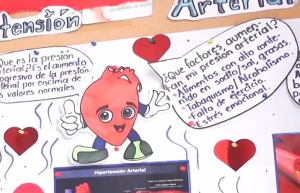 tensión
Arterial
Que es la presión
arterial? Es el aumento
progresivo de la presión
por encima de
los valores normales
¿Que factores aumen-
tan mi presión arterial?
Alimentos con alto conte-
nido en sodio/sal, grasas
Tabaquismo/Alcoholismo
Falta de Ejercicio
Estrés emocional
Hipertensión Arterial